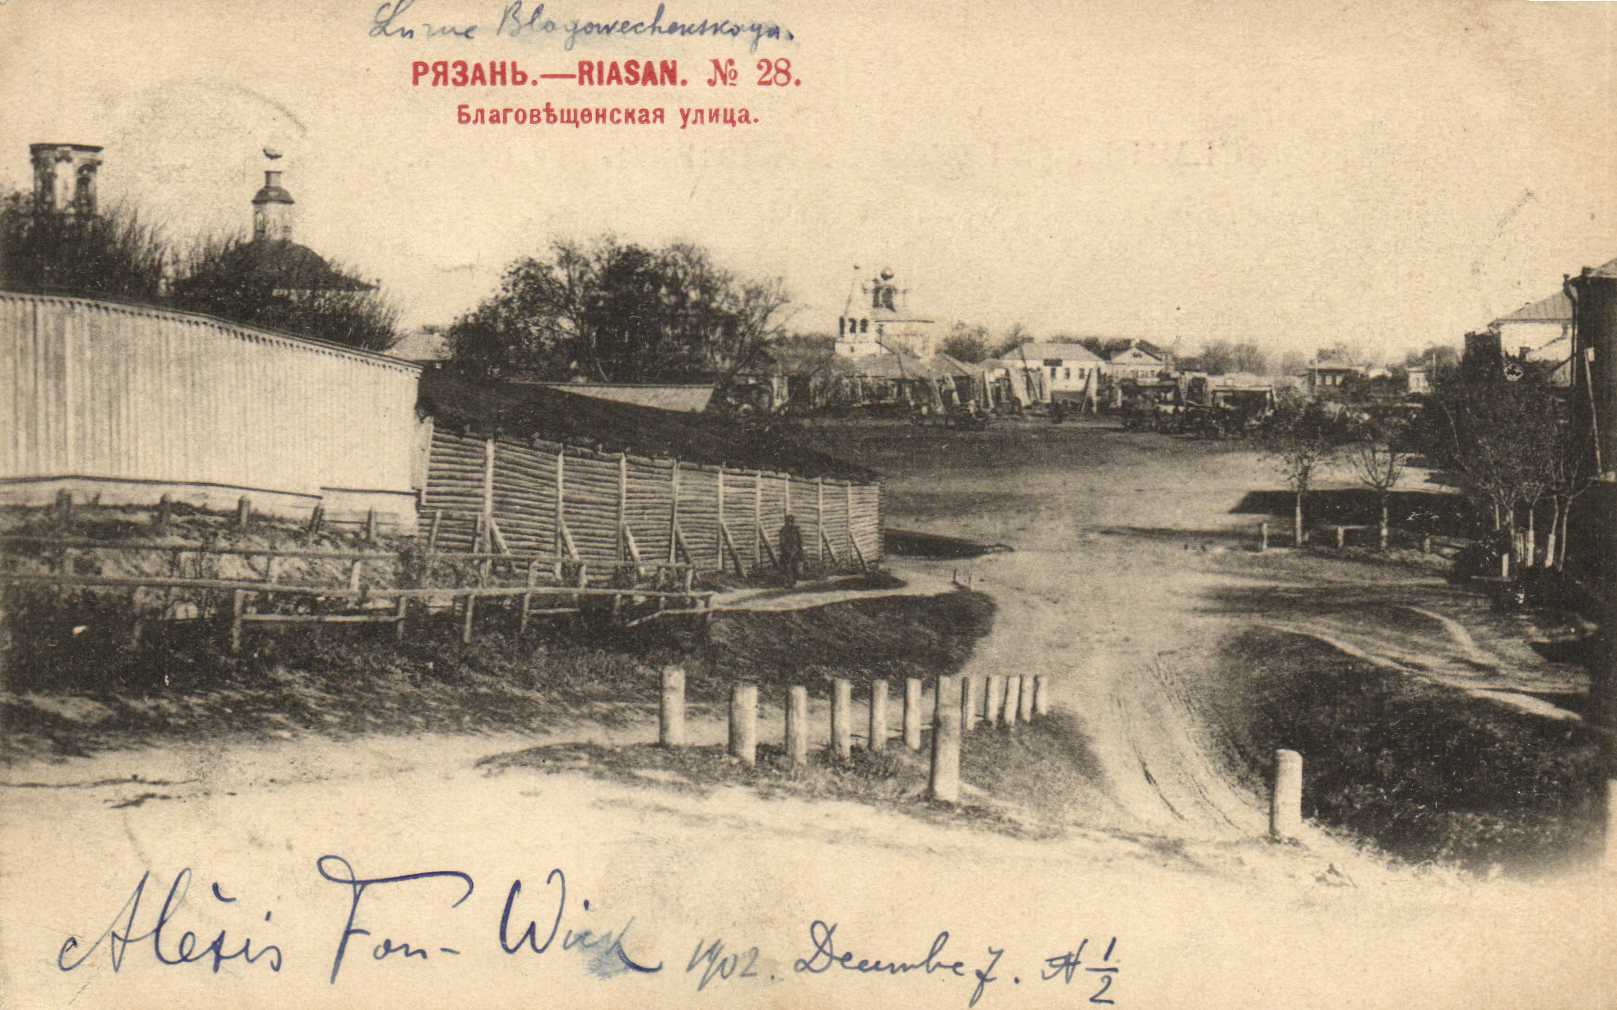 Blagowechenskaya.
РЯЗАНЬ.—RIASAN. № 28.
Благовѣщенская улица.
Alexis Fon-Wick 1902. Decembre 7. № 1/2